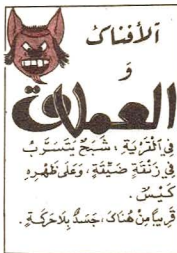 الأفناك
و
العملاق
فِي الْقَرْيَةِ ، شَبَحٌ يَتَسَرَّبُ
فِي زَنْقَةٍ ضَيِّقَةٍ ، وَعَلَى ظَهْرِهِ
كِيسٌ .
قَرِيبًا مِنْ هُنَاكَ ، جَسَدٌ بِلَا حَرَكَةٍ .